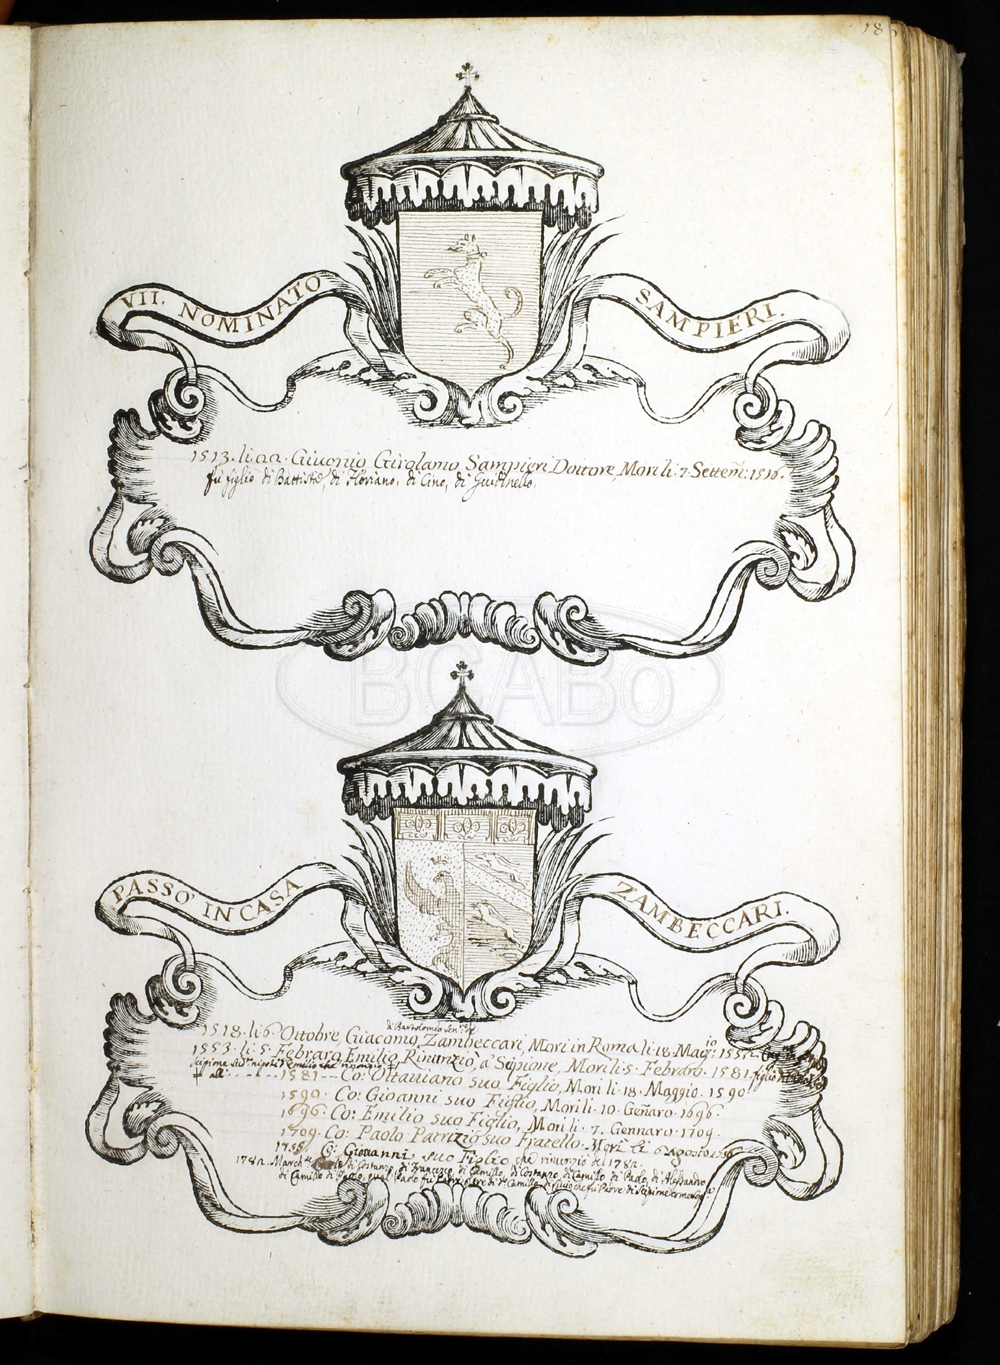 18
VII. NOMINATO SAMPIERI.
1513. li 22. Girolamo Sampieri Dottore, Morì li 7. Settem: 1516.
fù figlio di Battista, di Floriano, di Cino, di
BCABo
PASSO' IN CASA ZAMBECCARI.
di Bartolomeo
1518. li 6. Ottobre, Giacomo Zambeccari, Morì in Roma li 18. Magio:
1553. li 5. Febraro Emilio, Rinunziò à Scipione, Morì li 5. Febraro. 1581.
1581 Co: Ottaviano suo Figlio, Morì li 18. Maggio. 1590.
1590. Co: Gioanni suo Figlio, Morì li 10. Gennaro. 1696.
1696. Co: Emilio suo Figlio, Morì li 7. Gennaro. 1709.
1709. Co: Paolo Patrizio suo Fratello. Morì li 6 Agosto
Co: Giovanni suo Figlio che rinunziò del 1782.
1782. March: di Costanzo, di Francesco, di Camillo, di Costanzo, di Camillo, di Paolo, di Alessandro
di Camillo di Paolo, qual Paolo fù